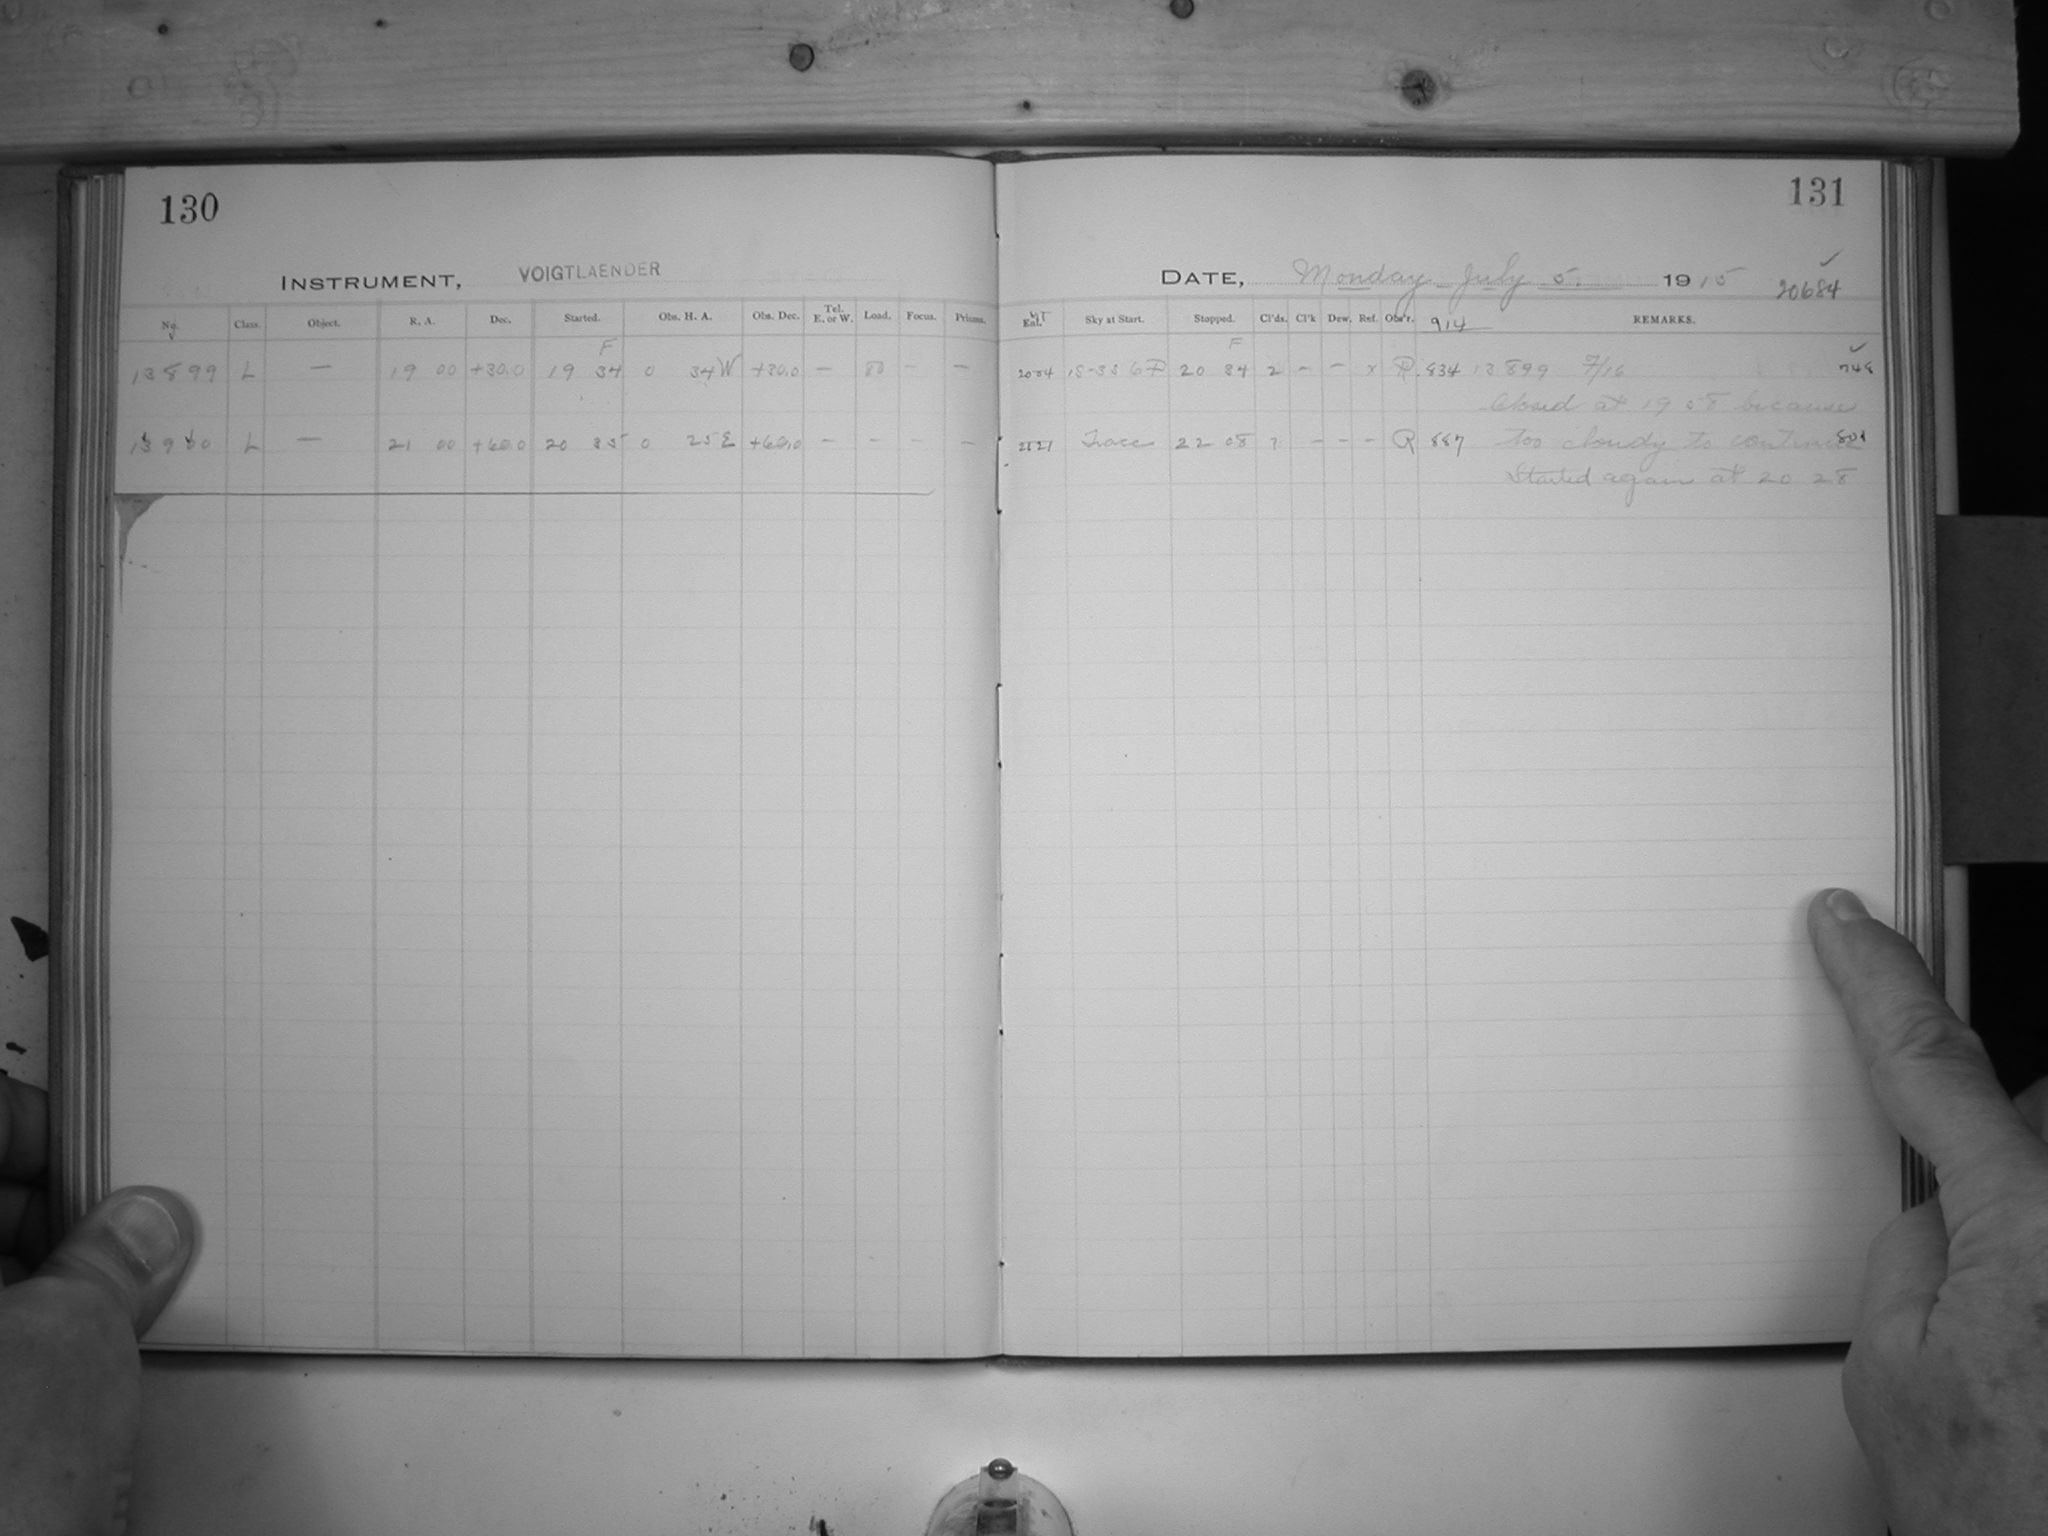 130
INSTRUMENT, VOIGTLAENDER
No. Class. Object. R. A. Dec. Started. Obs. H. A. Obs. Dec. Tel. E. or W. Load. Focus. Prisms.
F
13899 L — 19 00 +30.0 19 34 0 34 W +30.0 — 80 - —
13900 L — 21 00 +60.0 20 35 0 25 E +60.0 - - - -
131
DATE, Monday July 5. 1915
20684
Sky at Start. Stopped. Cl'ds. Cl'k Dew. Ref. Obs'r. 914 REMARKS.
F
20 34 2 - - x R. 834 13899 7/16
Closed at 19 58 because
Trace 22 08 ? - - - R 887 too cloudy to continue
Started again at 20 28